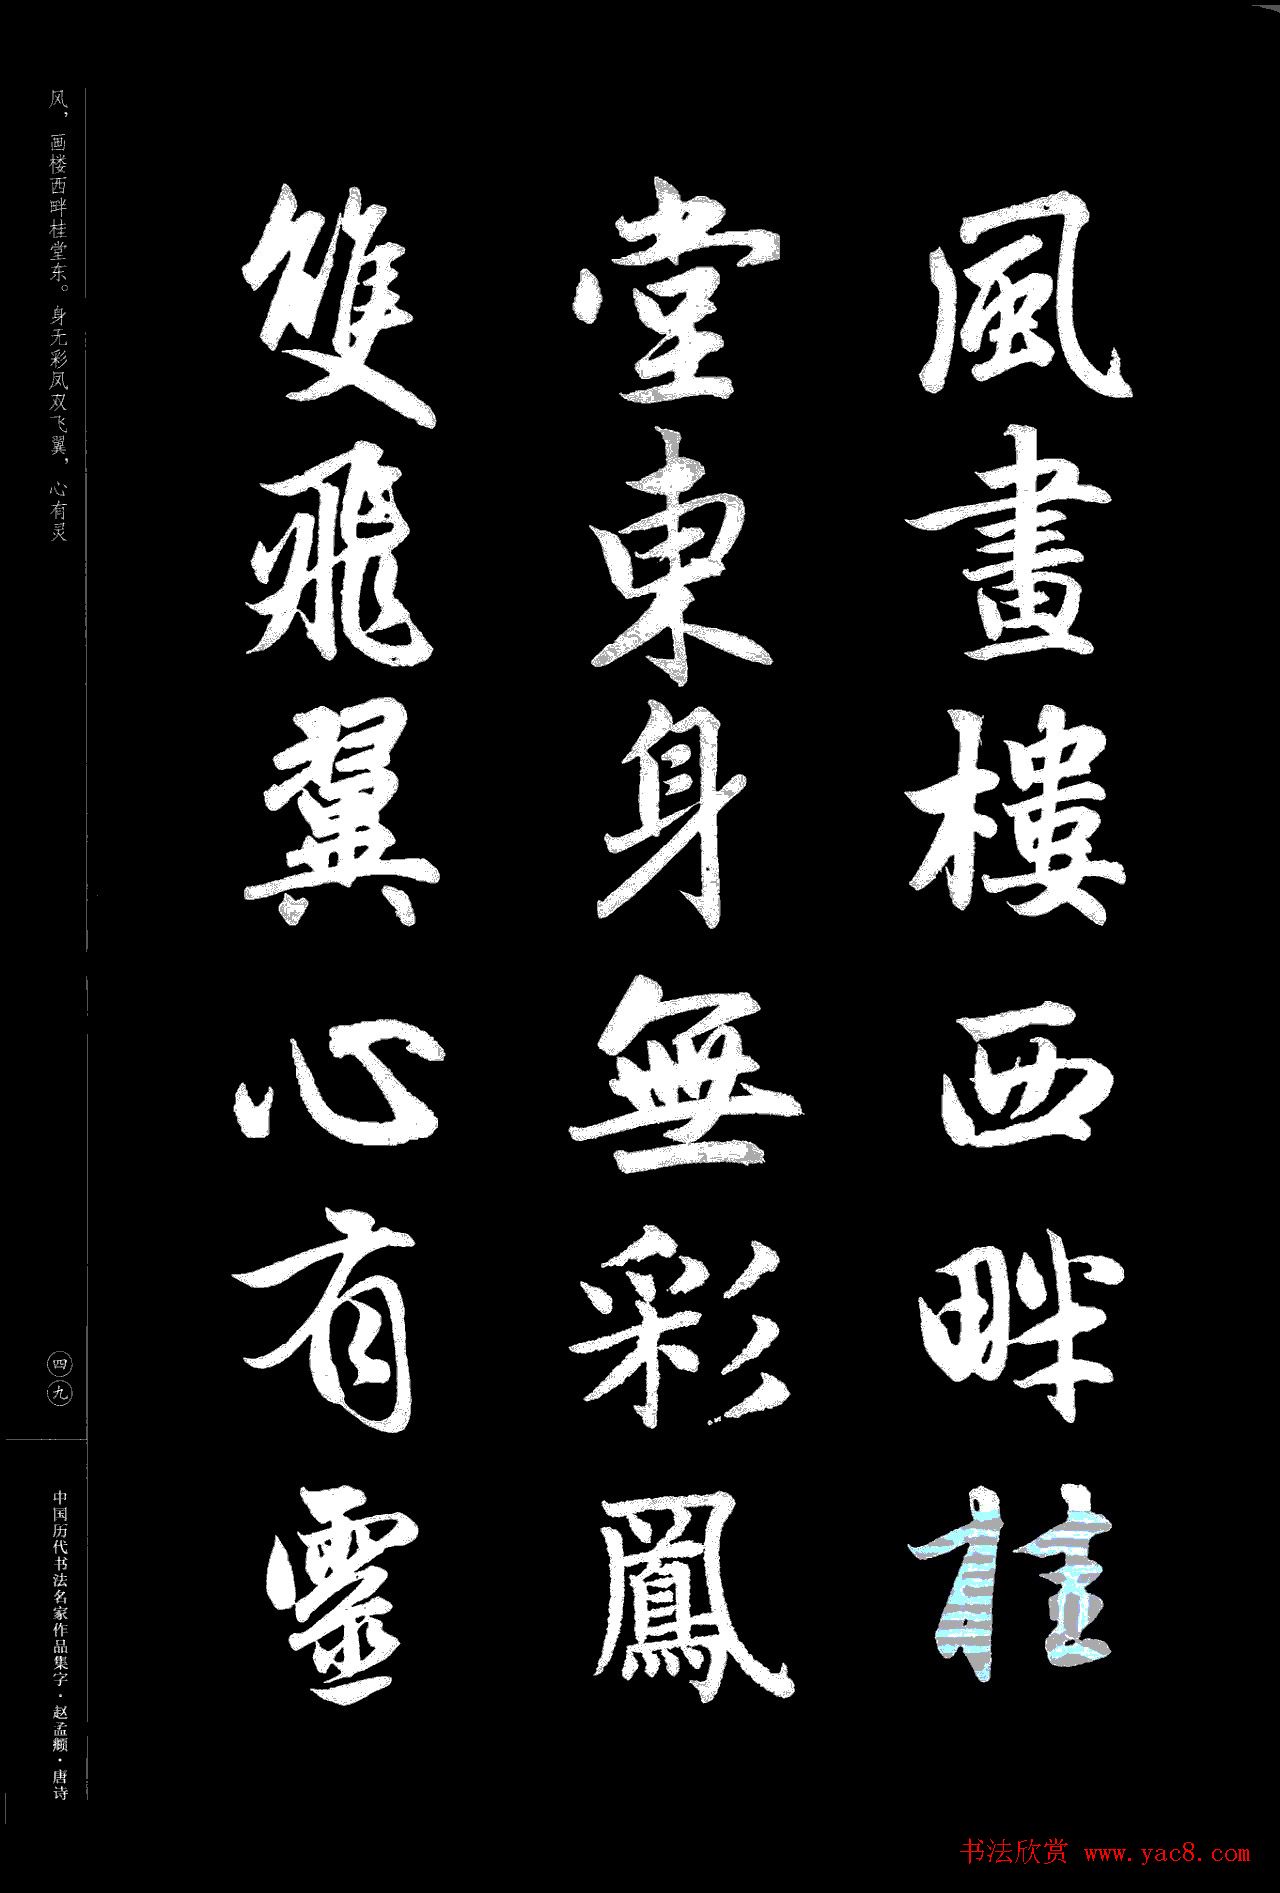 風畫樓西畔桂
堂東身無彩鳳
雙飛翼心有靈
风，画楼西畔桂堂东。身无彩凤双飞翼，心有灵
四九
中国历代书法名家作品集字·赵孟頫·唐诗
书法欣赏 www.yac8.com